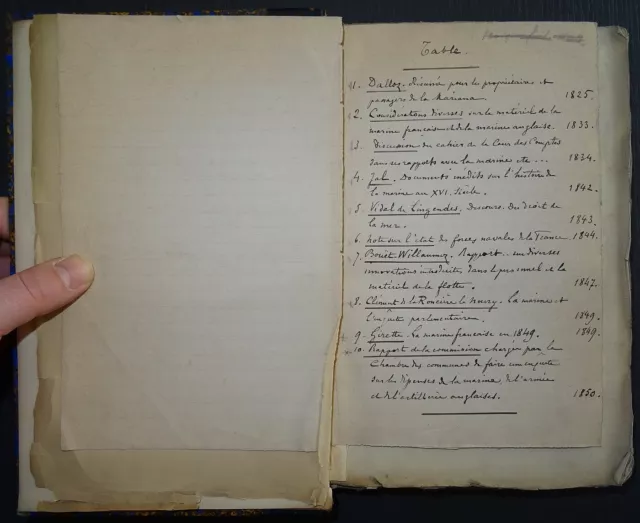 Table.
1. Dalloz. Résumé pour les propriétaires et
passagers de la Mariana 1825.
2. Considérations diverses sur le matériel de la
marine française et de la marine anglaise. 1833.
3. Discussion du cahier de la Cour des Comptes
dans ses rapports avec la marine etc... 1834.
4. Jal. Documents inédits sur l'histoire de
la marine au XVI. siècle. 1842.
5. Vidal de Lingendes. Discours. Du droit de
la mer. 1843.
6. Note sur l'état des forces navales de la France 1844.
7. Bouët Willaumez. Rapport sur diverses
innovations introduites dans le personnel et le
matériel de la flotte. 1847.
8. Clément de la Roncière le Noury. La marine et
l'enquête parlementaire. 1849.
9. Girette. La marine française en 1849. 1849.
10. Rapport de la commission chargée par la
Chambre des communes de faire une enquête
sur les dépenses de la marine, de l'armée
et de l'artillerie anglaises. 1850.